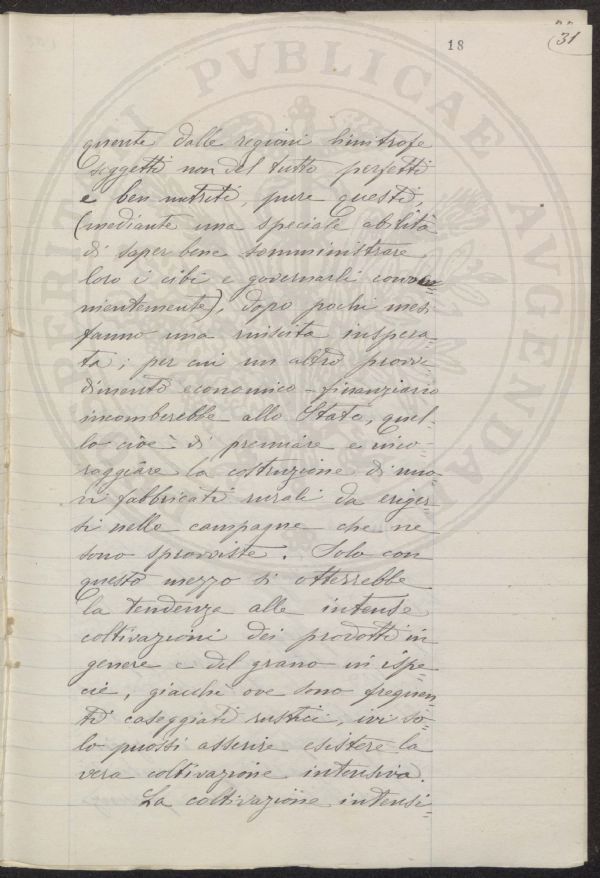 18
(31
quente dalle regioni limitrofe
soggetti non del tutto perfetti
e ben nutriti, pure questi,
(mediante una speciale abilità
di saper bene somministrare
loro i cibi e governarli conve=
nientemente), dopo pochi mesi
fanno una riuscita inspera=
ta; per cui un altro provve=
dimento economico-finanziario
incomberebbe allo Stato, quel=
lo cioè di premiare e inco=
raggiare la costruzione di nuo=
vi fabbricati rurali da eriger=
si nelle campagne che ne
sono sprovviste. Solo con
questo mezzo si otterrebbe
la tendenza alle intense
coltivazioni dei prodotti in
genere e del grano in ispe=
cie, giacchè ove sono frequen=
ti caseggiati rustici, ivi so=
lo puossi asserire esistere la
vera coltivazione intensiva.
La coltivazione intensi=
PVBLICAE
AVGENDAE